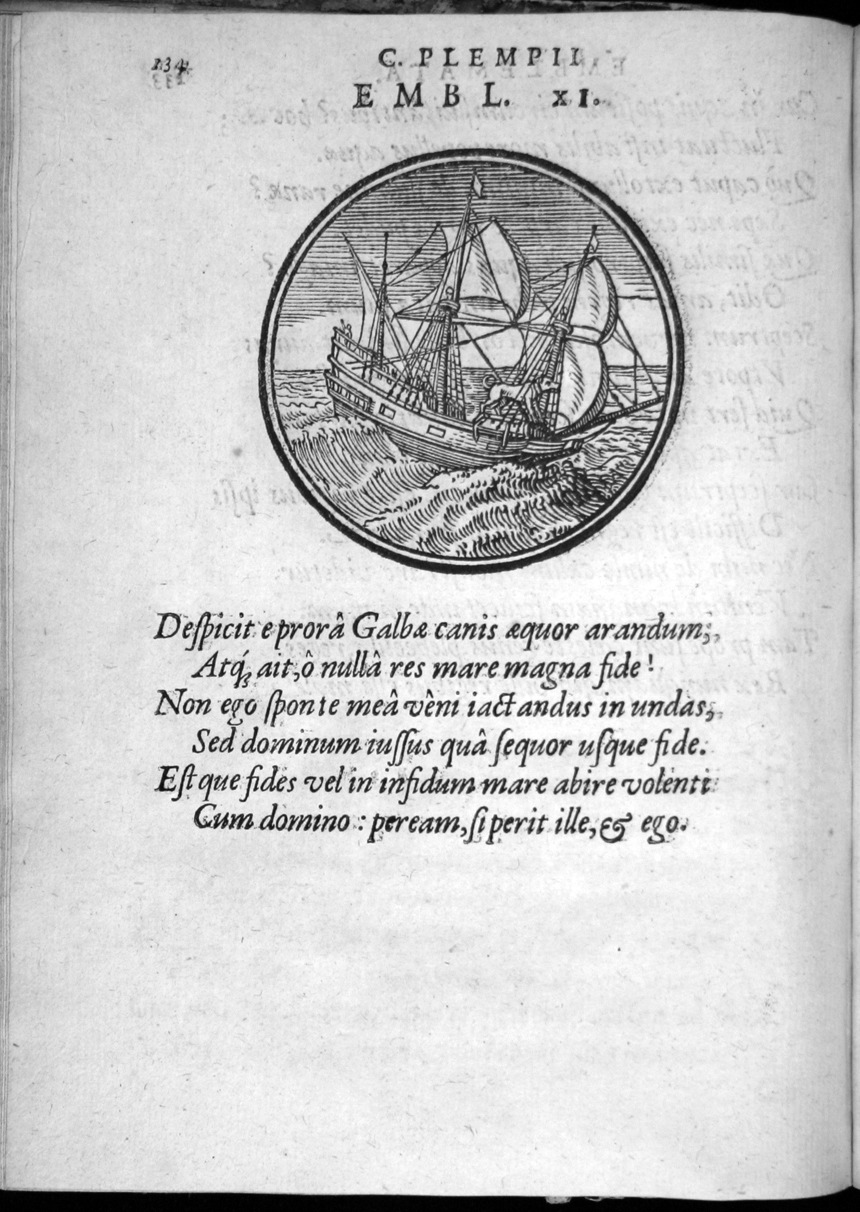 134
C. PLEMPII
EMBL. XI.
Deſpicit e prorâ Galbæ canis æquor arandum;
Atq́ꝫ ait, ô nullâ res mare magna fide!
Non ego ſponte meâ vêni iactandus in undas;
Sed dominum iuſſus quâ ſequor uſque fide.
Eſt que fides vel in infidum mare abire volenti
Cum domino: peream, ſi perit ille, & ego.